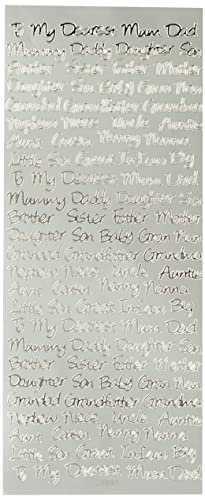 To My Dearest Mum Dad
Mummy Daddy Daughter Son
Brother Sister Father Mother
Daughter Son Baby Gran Nan
Grandad Grandfather Grandma
Nephew Niece Uncle Auntie
Aunt Cousin Nanny Nanna
Little Son Cards In-law Big
To My Dearest Mum Dad
Mummy Daddy Daughter Son
Brother Sister Father Mother
Daughter Son Baby Gran Nan
Grandad Grandfather Grandma
Nephew Niece Uncle Auntie
Aunt Cousin Nanny Nanna
Little Son In-law Big
To My Dearest Mum Dad
Mummy Daddy Daughter Son
Brother Sister Father Mother
Daughter Son Baby Gran Nan
Grandad Grandfather Grandma
Nephew Niece Uncle Auntie
Aunt Cousin Nanny Nanna
Little Son In-law Big
To My Dearest Mum Dad